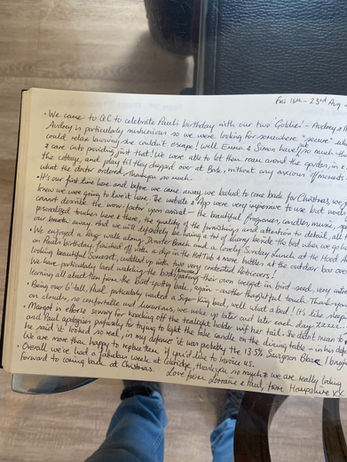 Fri 16th - 23rd Aug
• We came to O.C to celebrate Paul's birthday with our two 'Goldies' - Audrey &
Audrey is particularly mischievous so we were looking for somewhere "secure"
could relax knowing she couldn't escape! Well Emma & Simon have put so much
& care into providing just that! We were able to let them roam around the garden, in
the cottage, and play till they dropped over at Bark, without any anxious
what the doctor ordered, thankyou so much.
• It's our first time here and before we came away we backed to come back for Christmas, we
knew we were going to love it here. The website & App were very impressive to use but words
cannot describe the wow factor upon arrival - the beautiful fragrances, candles, music,
personalised touches here & there, the quality of the furnishings and attention to detail,
our breath away - that we will definitely be having a bit of divany beside the bed when we go
• We enjoyed a long walk along Beach and a lovely Sunday Lunch at the Hood
on Paul's birthday, finished off with a dip in the Hot Tub & more bubbles at the outdoor bar over
looking beautiful Somerset, cuddled up with two very contented Retrievers!
We have particularly loved watching the birds eating their own weight in bird seed, very
learning all about them via the bird spotting book, again - another thoughtful touch. Thank you
• Being over 6' tall, Paul particularly wanted a Super King bed, well what a bed! It's like
on clouds, so comfortable and luxurious, we woke up later and later each day zzzz....
• Margot is offers sorry for knocking off the tealight holder with her tail, she didn't mean to
and Paul apologises profusely for trying to light the fake candle on the dining table - in his
he said it looked so real, in my defence it was probably the 13.5% Sauvignon Blanc I
We are more than happy to replace them if you'd like to invoice us.
• Overall we've had a fabulous week at oldridge, thankyou so much & we are really looking
forward to coming back at Christmas. Love from Lorraine & Paul, from Hampshire xx